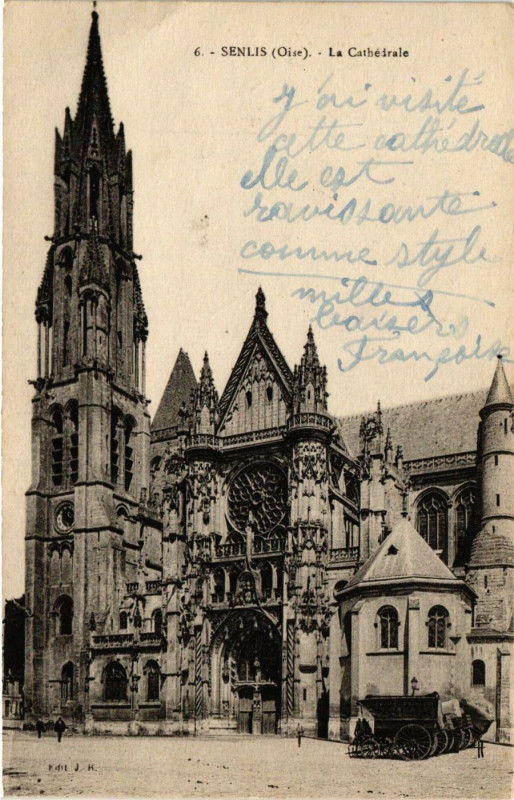 6. - SENLIS (Oise). - La Cathédrale
J'ai visité
cette cathédrale
elle est
ravissante
comme style
milles
baisers
Françoise
Edit. J. R.